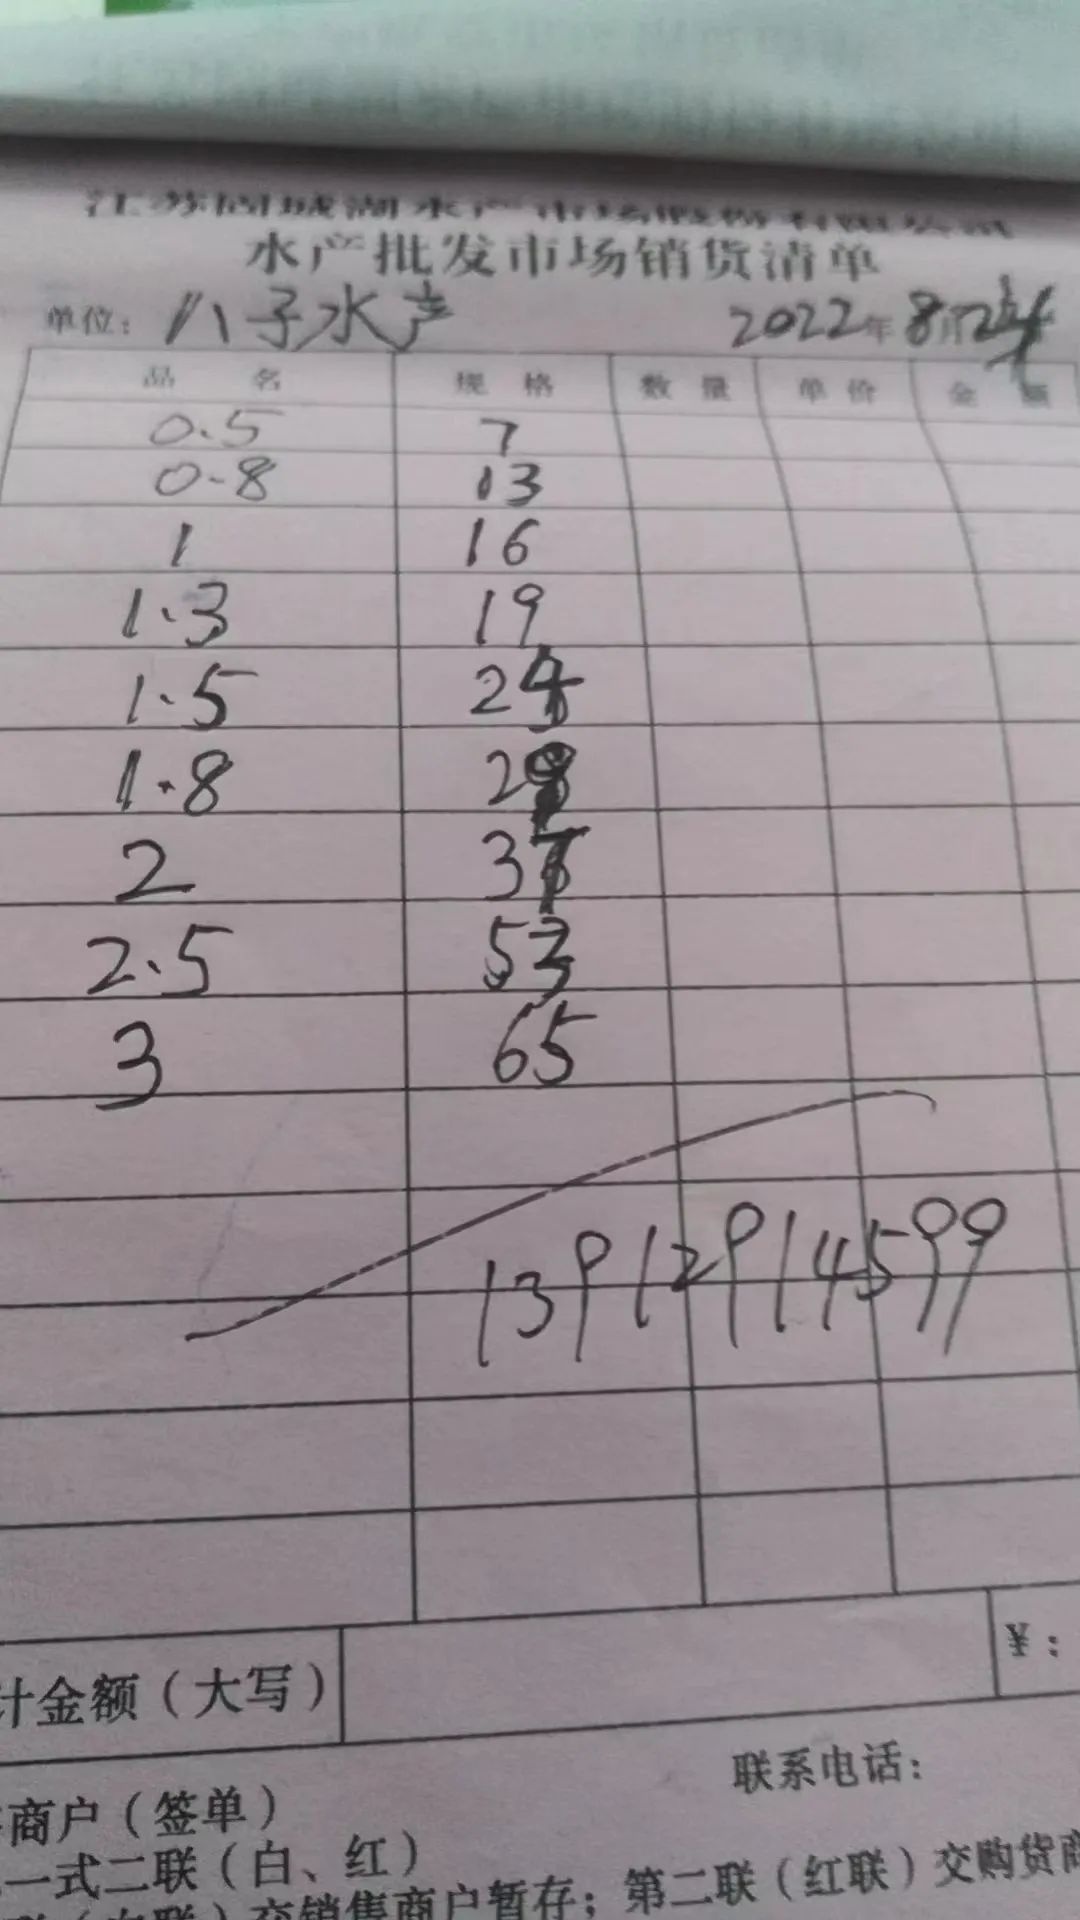 江苏固城湖水产市场股份有限公司
水产批发市场销货清单
单位: 八子水产 2022年8月24
品名 规格 数量 单价 金额
0.5 7
0.8 13
1 16
1.3 19
1.5
1.8
2
2.5
3 65
13912914599
计金额(大写) ¥:
联系电话:
商户(签单)
一式二联(白、红)
交销售商户暂存;第二联(红联)交购货商